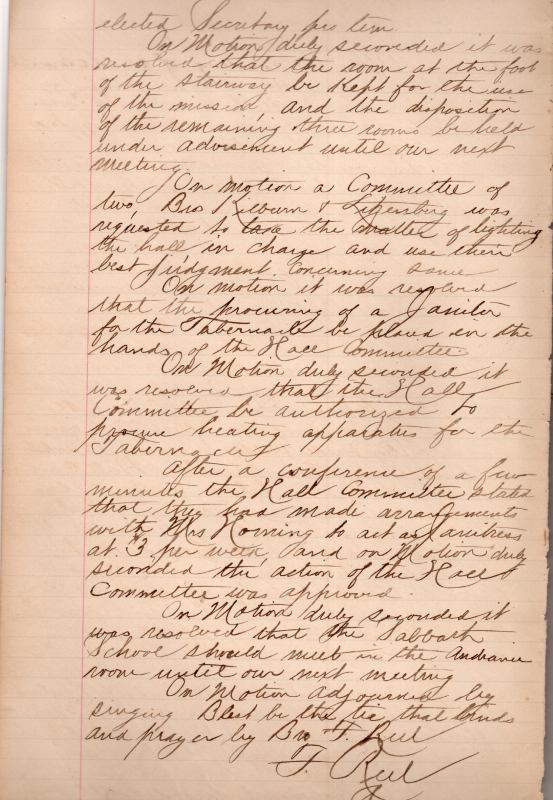 elected Secretary pro tem.
On Motion duly seconded it was
resolved that the room at the foot
of the stairway be kept for the use
of the mission and the disposition
of the remaining three rooms be held
under advisement until our next
meeting.
On motion a Committee of
two, Bro Kilburn & was
requested to take the matter of lighting
the hall in charge and use their
best judgment concerning same
On motion it was resolved
that the procuring of a Janitor
for the Tabernacle be placed in the
hands of the Hall Committee.
On Motion duly seconded it
was resolved that the Hall
Committee be authorized to
procure heating apparatus for the
Tabernacle
After a conference of a few
minutes the Hall Committee stated
that they had made arrangements
with Mrs Horning to act as Janitress
at $3 per week, and on Motion duly
seconded the action of the Hall
Committee was approved.
On Motion duly seconded it
was resolved that the Sabbath
School should meet in the
room until our next meeting
On Motion adjourned by
singing Blest be the tie that binds
and prayer by Bro F. Reel
F. Reel